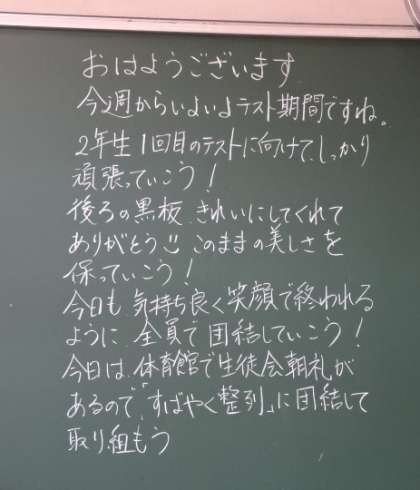 おはようございます
今週からいよいよテスト期間ですね。
2年生1回目のテストに向けて、しっかり
頑張っていこう！
後ろの黒板 きれいにしてくれて
ありがとう このままの美しさを
保っていこう！
今日も 気持ち良く笑顔で終われる
ように 全員で団結していこう！
今日は、体育館で生徒会朝礼が
あるので「すばやく整列」に団結して
取り組もう